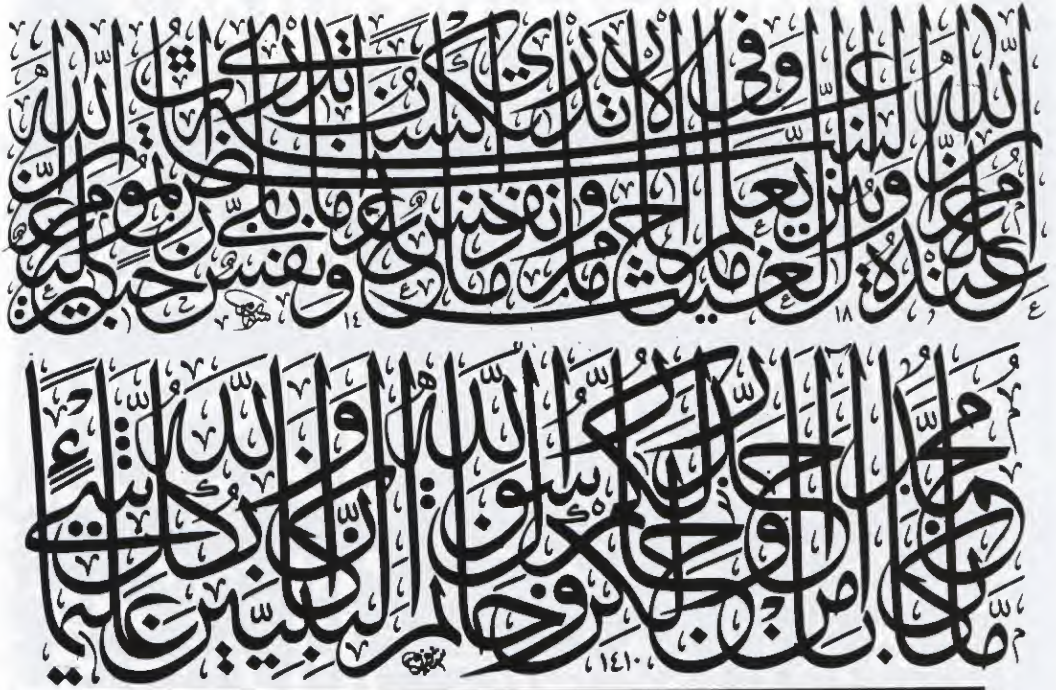 إن الله عنده علم الساعة وينزل الغيث ويعلم ما في الأرحام وما تدري نفس ماذا تكسب غدا وما تدري نفس بأي أرض تموت إن الله عليم خبير
١٨ ١٤
ما كان محمد أبا أحد من رجالكم ولكن رسول الله وخاتم النبيين وكان الله بكل شيء عليما
١٤١٠